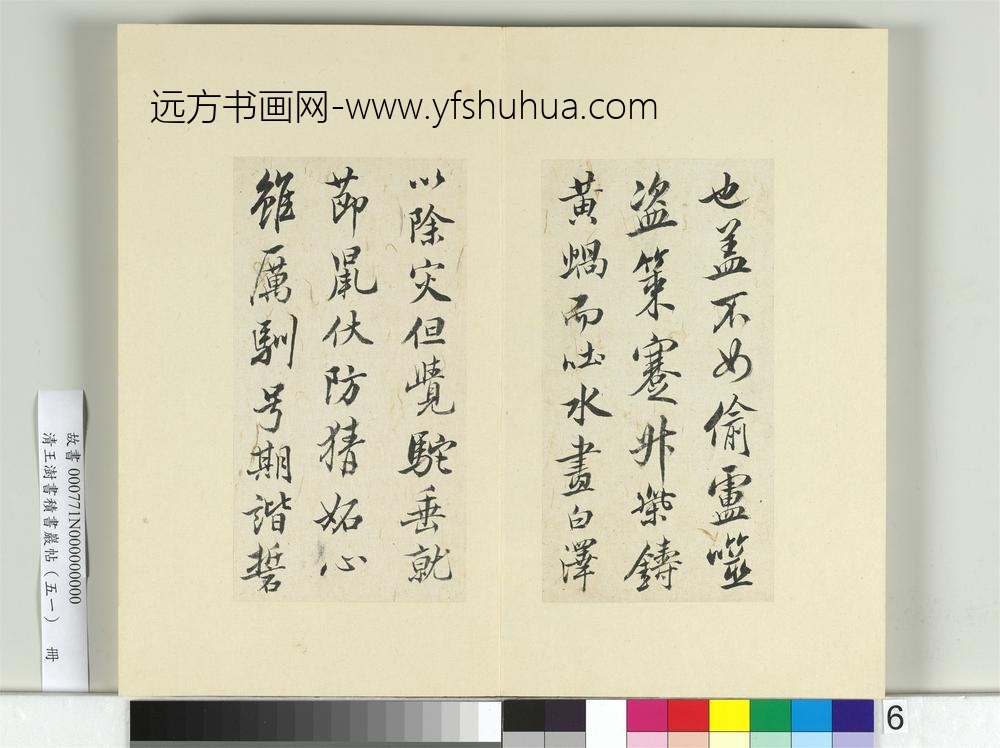 远方书画网-www.yfshuhua.com
也盖不如偷噬
盗策蹇鑄
黃蝸而吐水畫白澤
以除灾但覺駝垂就
節鼠伏防猜妬心
雖厲馴号期諧
故書 000771N000000000
清王澍書積書巖帖(五一) 冊
6